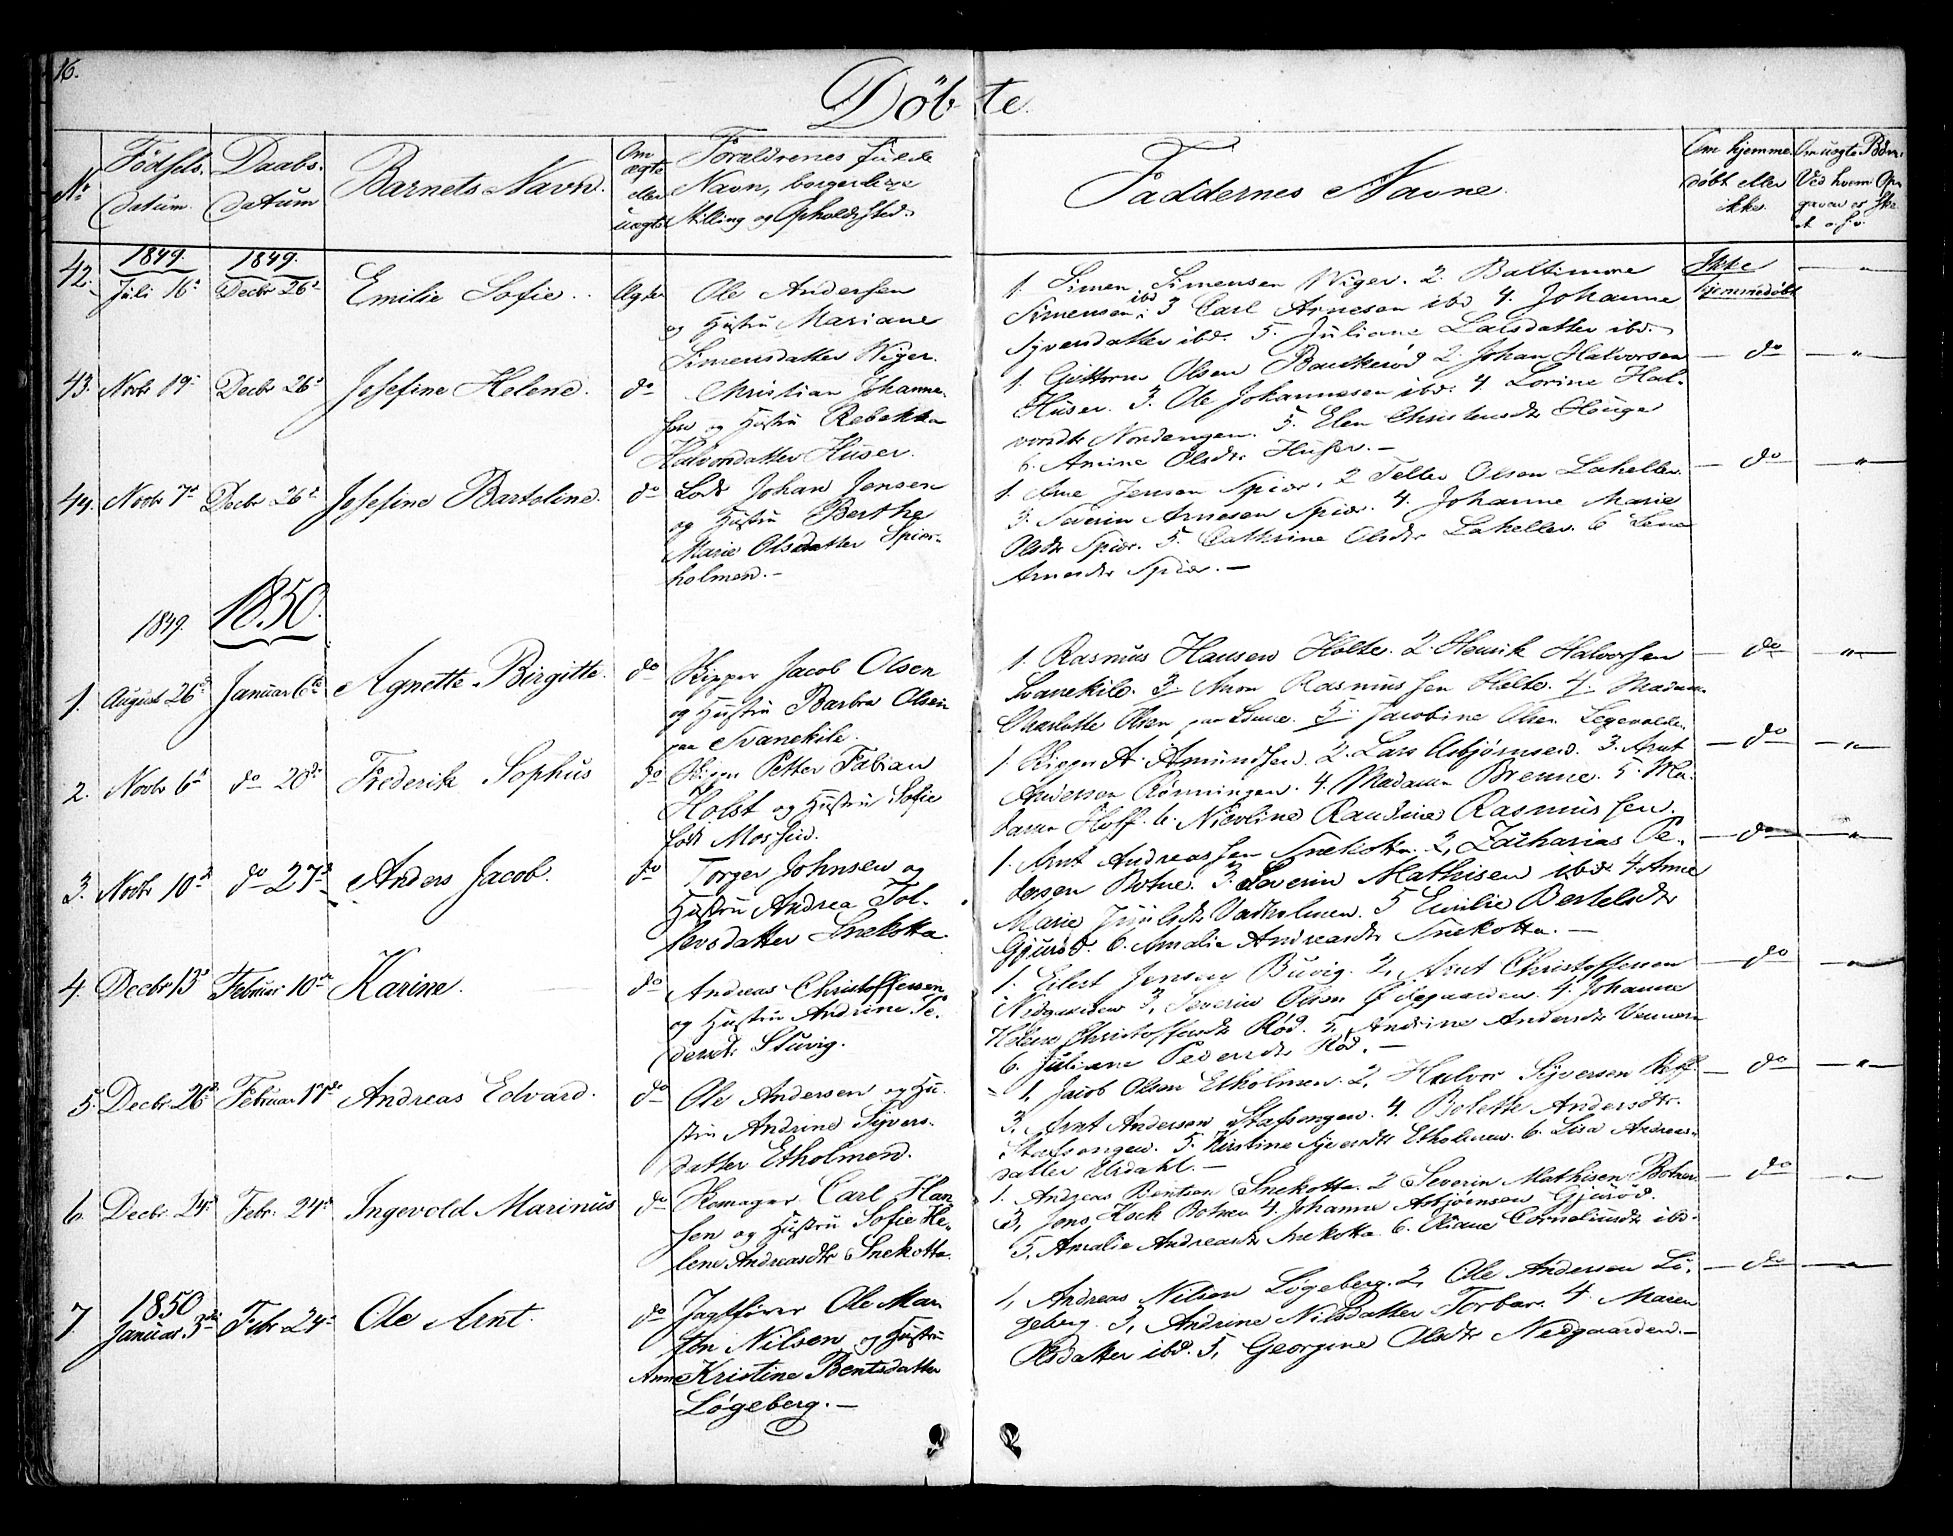 16.
Döbte.
No
Födsels datum.
Daabs datum
Barnets Navn.
Om ægte eller uægte
Forældrenes fulde Navn, borgerlige Stilling og Opholdssted.
Faddernes Navne.
Om hjemme døbt eller ikke.
Om uægte Børn. Ved hvem
42.
1849. Juli 16d
1849. Decbr 26d
Emilie Sofie.
Ægte
Ole Andersen
og Hustru Mariane
Simensdatter Viger.
1. Simen Simensen Viger. 2. Baltimore
Simensen ibd 3 Carl Arnesen ibd 4. Johanne
Syversdatter ibd. 5. Juliane Larsdatter ibd.
Ikke hjemmedöbt
43. Novbr 19d
Decbr 26d
Josefine Helene.
do
Christian Johanne-
sen og Hustru Rebekka
Halvorsdatter Huser.
1. Guttorm Olsen Bauskeröd 2. Johan Halvorsen
Huser. 3. Ole Johannesen ibd. 4 Lorine Hal-
vorsdtr Nordengen. 5. Elen Christensdtr Houge
6. Amine Olsdtr Huser. —
do
44. Novbr 7d
Decbr 26d
Josefine Bartoline.
do
Lods Johan Jensen
og Hustru Berthe
Marie Olsdatter Spier-
holmen. —
1. Arne Jensen Spier. 2 Tellef Olsen Lahelle.
3. Severin Arnesen Spier. 4. Johanne Marie
Olsdtr Spier. 5. Cathrine Olsdtr Lahelle. 6 Lena
Arnesdtr Spier. —
do
1849.
1850.
1. August 26d
Januar 6te
Agnette Birgitte.
do
Skipper Jacob Olsen
og Hustru Barbra Olsen
paa Svanekile.
1. Rasmus Hansen Holte. 2. Henrik Halvorsen
Svanekile. 3 Aron Rasmussen Holte. 4. Madam
Charlotte Olsen 5 Jacobine Olsen
do
2. Novbr 6d
do 20de
Frederik Sophus
do
Skipper Petter Fabian
Holst og Hustru Sofie
född Mossin.
1. Skipper A. Amundsen. 2. Lars Asbjörnsen. 3. Arnt
Andersen Rönningen. 4. Madam Brenne. 5. Ma-
dam Hoff. 6. Nicoline Randine Rasmussen.
do
3. Novbr 10d
do 27d
Anders Jacob.
do
Torger Johnsen og
Hustru Andrea Tol-
levsdatter Snekotta.
1. Arnt Andreassen Snekotta. 2, Zacharias Pe-
dersen Botne. 3. Severin Mathisen ibd 4. Anne
Marie Juulsdtr Vadholmen. 5 Emilie Bertelsdtr
Gjuröd. 6. Amalie Andreasdtr Snekotta. —
do
4. Decbr 13d
Februar 10de
Karine.
do
Andreas Christoffersen
og Hustru Andrine Pe-
dersdtr Stuvig.
1. Eilert Jensen Buvig. 2, Arnt Christoffersen
Nedgaarden 3, Severin Olsen Ödegaarden. 4. Johanne
Helene Christoffersdtr Röd. 5, Andrine Andersdtr
6. Juliane Pedersdtr Röd. —
do
5. Decbr 26d
Februar 17de
Andreas Edvard.
do
Ole Andersen og Hu-
stru Andrine Syvers-
datter Etholmen.
1, Jacob Olsen Etholmen. 2, Halvor Syversen
3. Arnt Andersen Stafsengen. 4. Bolette Andersdtr.
Stafsengen. 5. Kirstine Syversdtr Etholmen. 6. Lisa Andreas-
datter Urdahl. —
do
6. Decbr 24d
Febr. 24d
Ingevold Marinus
do
Skomager Carl Han-
sen og Hustru Sofie He-
lene Andreasdtr Snekotta.
1. Andreas Bentsen Snekotta. 2 Severin Mathisen Botne.
3, Jens Kock Botne 4. Johanne Asbjörnsen Gjuröd.
5, Amalie Andreasdtr Snekotta. 6. Eliane Corneliusdtr ibd.
do
7.
1850 Januar. 3de
Febr 24d
Ole Arnt.
do
Jagtförer Ole Mar-
tin Nilsen og Hustru
Anne Kristine Bentsdatter
Lögeberg. —
1, Andreas Nilsen Lögeberg. 2, Ole Andersen Lö-
geberg. 3, Andrine Nilsdatter Torbar. 4. Maren
Olsdatter ibd. 5, Georgine Olsdtr Nedgaarden. —
do